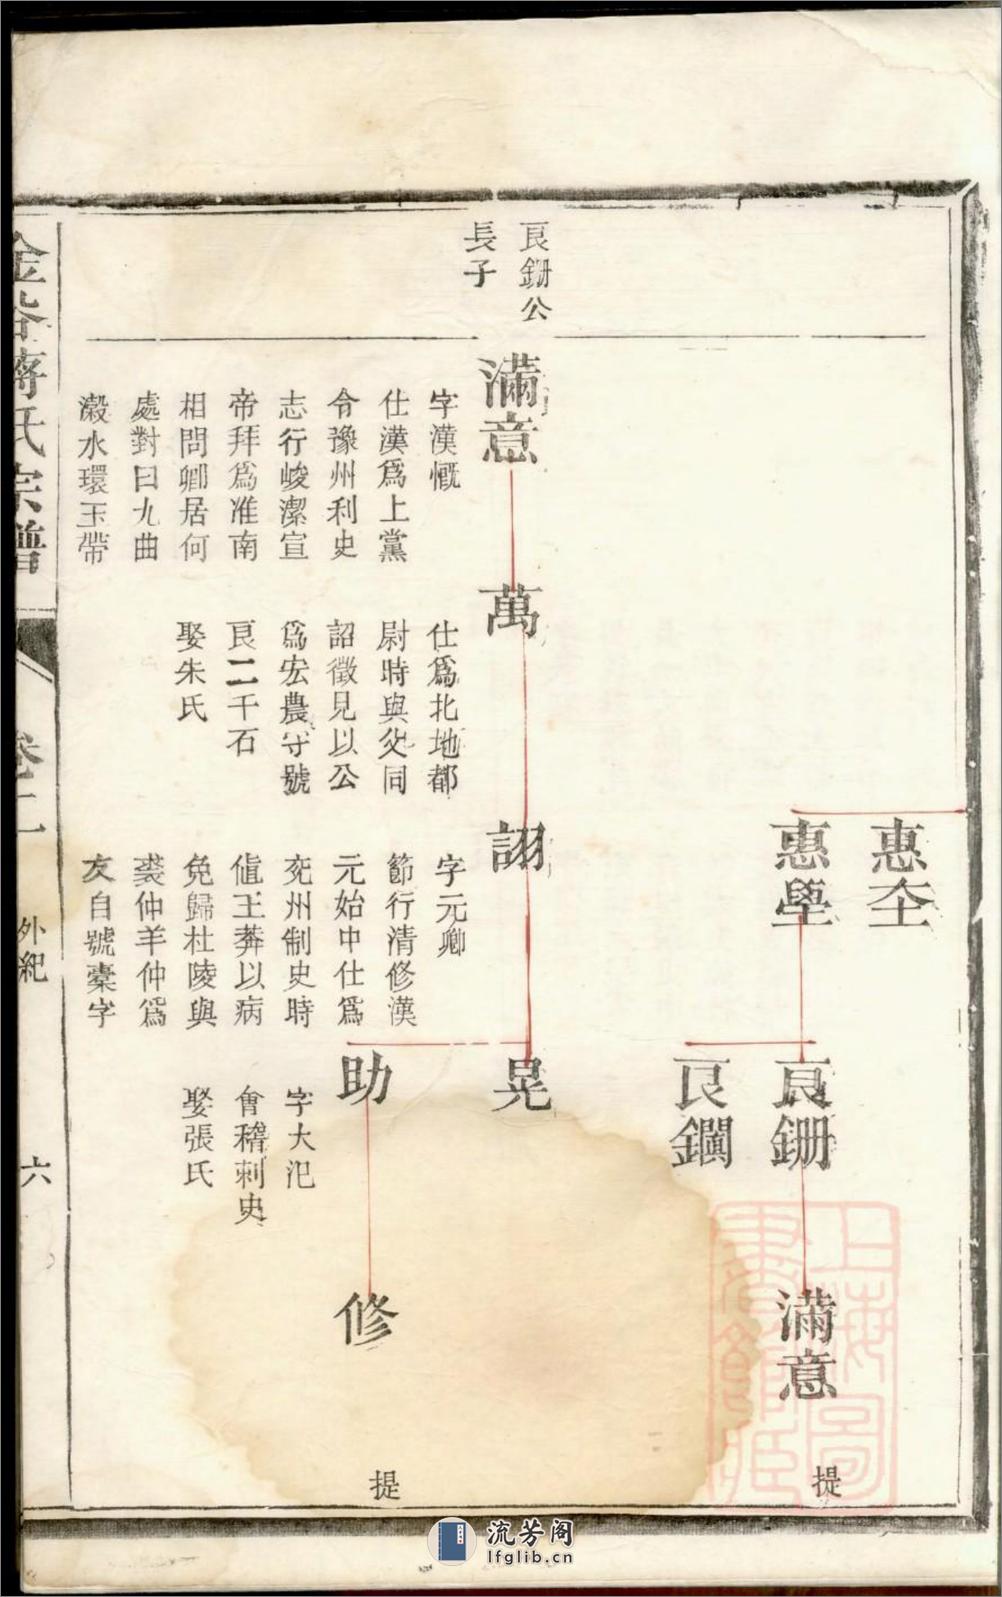 惠𡉄
惠壆
良鉶
良鐗
滿意
提
良鉶公
長子
滿意
字漢慨
仕漢爲上黨
令豫州利史
志行峻潔宣
帝拜爲准南
相問卿居何
處對曰九曲
瀫水環玉帶
萬
仕爲北地都
尉時與父同
詔徵見以公
爲宏農守號
良二千石
娶朱氏
詡
字元卿
節行清修漢
元始中仕爲
兖州制史時
值王莽以病
免歸杜陵與
裘仲羊仲爲
友自號槖字
晃
助
字大汜
會稽刺史
娶張氏
修
提
金谷蔣氏宗譜
卷二
外紀
六
上海圖書館藏
流芳阁
lfglib.cn